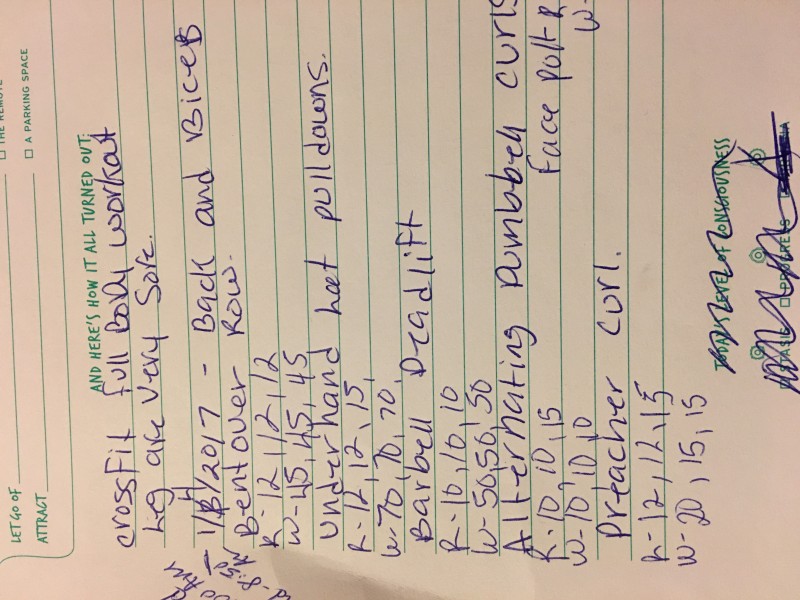 THE REMOTE
LET GO OF
ATTRACT
☐ A PARKING SPACE
AND HERE'S HOW IT ALL TURNED OUT:
crossfit full body workout
Leg are very Sore.
2017 - Back and Biceb
Bentover Row.
R-12,12,12
W-45,45,45
Underhand Lat pulldowns.
R-12,12,15
W-70,70,70,
Barbell Deadlift
R-10,10,10
W-50,50,50
Alternating Dumbbell curls
R-10,10,15
Face pull R
W-10,10,10
W-
Preacher curl.
R-12,12,15
W-20,15,15
TODAY'S LEVEL OF CONSCIOUSNESS
BASIC ☐ PROGRESS